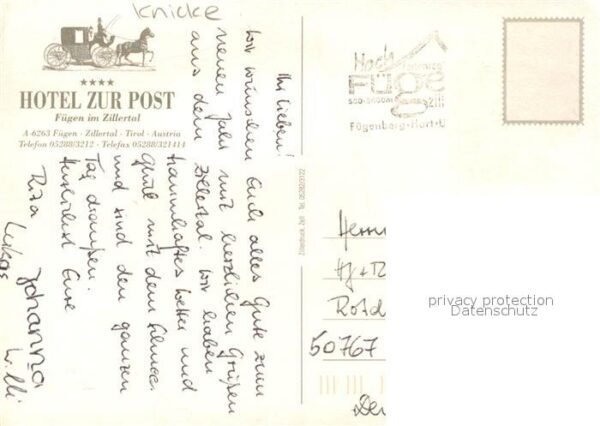 Knicke
HOTEL ZUR POST
Fügen im Zillertal
A-6263 Fügen · Zillertal · Tirol · Austria
Telefon 05288/3212 · Telefax 05288/321414
Ihr Lieben!
Wir wünschen Euch alles Gute zum
neuen Jahr mit herzlichen Grüßen
aus dem Zillertal. Wir haben
traumhaftes Wetter und
Glück mit dem Schnee
und sind den ganzen
Tag draußen.
Herzlichst Eure
Rita Johanna
Lukas Willi
Hoch
FÜGE
Zill
Fügenberg-Hart-U
Zillerdruck, Zell Tel. 05282/3122
50767
privacy protection
Datenschutz